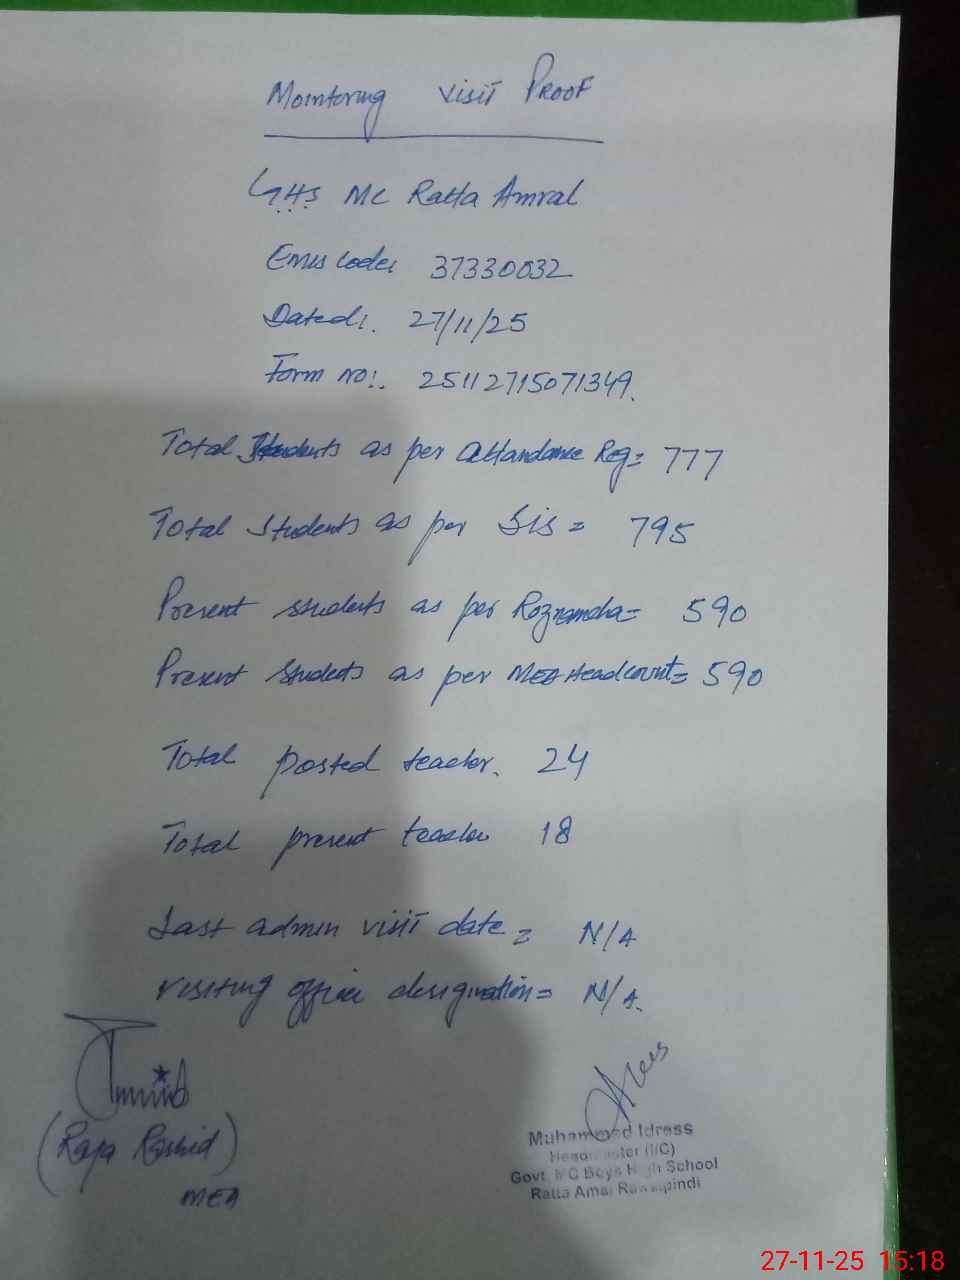 Mointoring visit PROOF
GHS MC Ratta Amral
Emis code: 37330032
Dated: 27/11/25
Form no: 25112715071349.
Total Students as per attandance Reg = 777
Total Students as per SIS = 795
Present students as per Roznamcha = 590
Present Students as per MEA Headcount = 590
Total posted teacher. 24
Total present teacher 18
Last admin visit date = N/A
Visiting officer designation = N/A.
(Raja Rashid)
MEA
Muhammad Idress
Headmaster (I/C)
Govt. MC Boys High School
Ratta Amal Rawalpindi
27-11-25 15:18